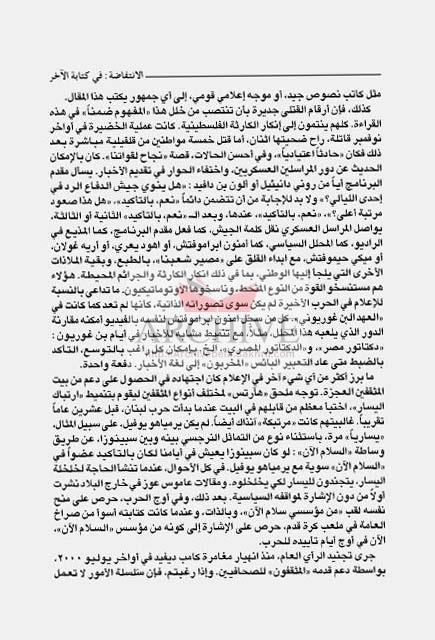 الانتفاضة: في كتابة الآخر
مثل كاتب نصوص جيد، أو موجه إعلامي قومي، إلى أي جمهور يكتب هذا المقال.
كذلك، فإن أرقام القتلى جديرة بأن تنتصب من خلل هذا «المفهوم ضمناً» في هذه
القراءة. كلهم ينتمون إلى إنكار الكارثة الفلسطينية. كانت عملية الخضيرة في أواخر
نوفمبر قاتلة، راح ضحيتها اثنان، أما قتل خمسة مواطنين من قلقيلية مباشرة بعد
ذلك فكان «حادثاً اعتيادياً»، وفي أحسن الحالات، قصة «نجاح لقواتنا». كان بالإمكان
الحديث عن دور المراسلين العسكريين، واختفاء الحوار في تقديم الأخبار. يسأل مقدم
البرنامج أياً من روني دانييئل أو ألون بن دافيد : «هل ينوي جيش الدفاع الرد في
إحدى الليالي؟» ولا بد للإجابة من أن تتضمن دائماً «نعم، بالتأكيد»، «هل هذا صعود
مرتبة أعلى؟»، «نعم، بالتأكيد»، عندها، وبعد الـ «نعم، بالتأكيد» الثانية أو الثالثة،
يواصل المراسل العسكري نقل كلمة الجيش، كما فعل مقدم البرنامج، كما المذيع في
الراديو، كما المحلل السياسي، كما أمنون ابراموفتش، أو اهود يعري، أو اريه غولان،
أو ميكي حيموفتش، مع ابداء القلق على «مصير شعبنا»، بالطبع، وبقية الملاذات
الأخرى التي يلجأ إليها الوطني، بما في ذلك إنكار الكارثة والجرائم المحيطة. هؤلاء
هم مستنسخو القوة من النوع المنحط، وناسخوها الأوتوماتيكيون. ما تداعى بالنسبة
للإعلام في الحرب الأخيرة لم يكن سوى تصوراته الذاتية، كأنها لم تعد كما كانت في
«العهد البن غوريوني». كل من سجل أمنون ابراموفتش لنفسه بالفيديو أمكنه مقارنة
الدور الذي يلعبه هذا المحلل، مثلاً، مع تنميط مشابه للأخبار في أيام بن غوريون :
«دكتاتور مصر»، و«الدكتاتور المصري»، الخ. بإمكان كل راغب بالتوسع، التأكد
بالضبط متى عاد التعبير البائس «المخربون» إلى لغة الأخبار. دفعة واحدة.
ما برز أكثر من أي شيء آخر في الإعلام كان اجتهاده في الحصول على دعم من بيت
المثقفين العجزة. توجه ملحق «هآرتس» لمختلف أنواع المثقفين ليقوم بتنميط «ارتباك
اليسار»، اختبأ معظم من قابلهم في البيت عندما بدأت حرب لبنان، قبل عشرين عاماً
تقريباً. غالبيتهم كانت «مرتبكة» آنذاك أيضاً. لم يكن يرمياهو يوفيل، على سبيل المثال،
«يسارياً» مرة، باستثناء نوع من التماثل النرجسي بينه وبين سبينوزا، عن طريق
وساطة «السلام الآن» : لو كان سبينوزا يعيش في أيامنا لكان بالتأكيد عضواً في
«السلام الآن» سوية مع يرمياهو يوفيل. في كل الأحوال، عندما تنشأ الحاجة لخلخلة
اليسار، يتجندون لليسار لكي يخلخلوه. ومقالات عاموس عوز في خارج البلاد نشرت
أولاً من دون الإشارة لمواقفه السياسية. بعد ذلك، وفي أوج الحرب، حرص على منح
نفسه لقب «من مؤسسي سلام الآن»، وبالذات، وعندما كانت كتابته أسوأ من صراخ
العامة في ملعب كرة قدم، حرص على الإشارة إلى كونه من مؤسس «السلام الآن»،
الآن في أوج أيام تأييده للحرب.
جرى تجنيد الرأي العام، منذ انهيار مغامرة كامب ديفيد في أواخر يوليو ٢٠٠٠،
بواسطة دعم قدمه «المثقفون» للصحافيين. وإذا رغبتم، فإن سلسلة الأمور لا تعمل
ARCHIVE